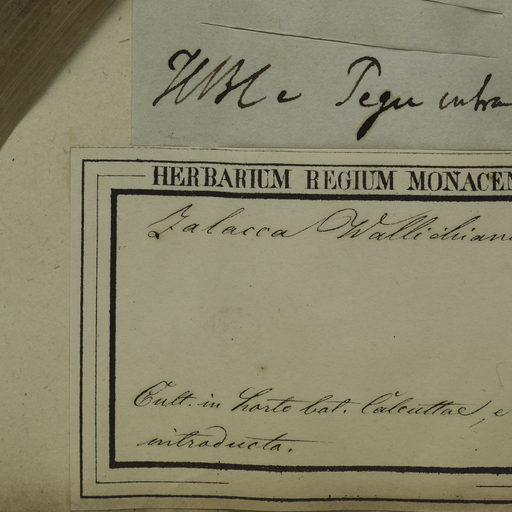 HBC e Pegu intra
HERBARIUM REGIUM MONACEN
Zalacca Wallichian
Cult. in horto bot. Calcuttae, e
introducta.